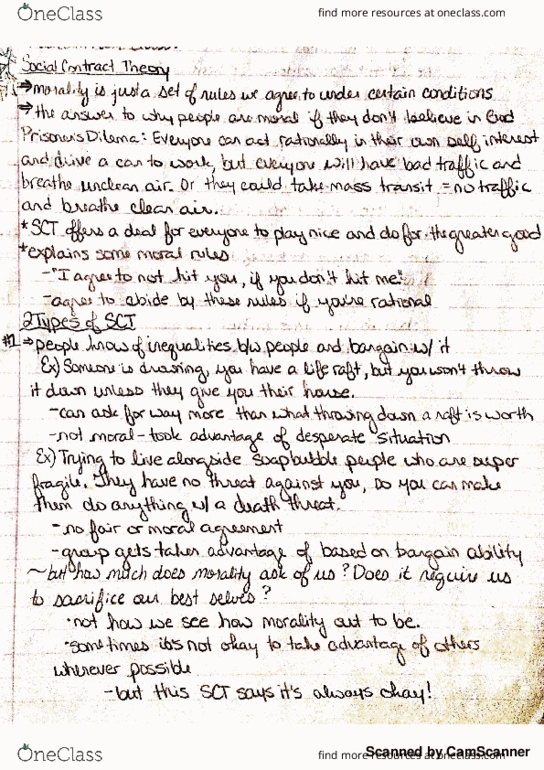 OneClass
find more resources at oneclass.com
Social Contract Theory
⇒morality is just a set of rules we agree to under certain conditions
⇒the answer to why people are moral if they don't believe in God
Prisoner's Dilema: Everyone can act rationally in their own self interest
and drive a car to work, but everyone will have bad traffic and
breathe unclean air. Or they could take mass transit = no traffic
and breathe clean air.
*SCT offers a deal for everyone to play nice and do for the greater good
*explains some moral rules
-"I agree to not hit you, if you don't hit me."
-agree to abide by these rules if you're rational
2 Types of SCT
#1 ⇒people know of inequalities b/w people and bargain w/ it
Ex) Someone is drowning, you have a life raft, but you won't throw
it down unless they give you their house.
-can ask for way more than what throwing down a raft is worth
-not moral-took advantage of desperate situation
Ex) Trying to live alongside soap bubble people who are super
fragile. They have no threat against you, so you can make
them do anything w/ a death threat.
-no fair or moral agreement
-group gets taken advantage of based on bargain ability
~but how much does morality ask of us? Does it require us
to sacrifice our best selves?
•not how we see how morality out to be.
•sometimes it's not okay to take advantage of others
wherever possible
-but this SCT says it's always okay!
OneClass
find more resources at oneclass.com
Scanned by CamScanner